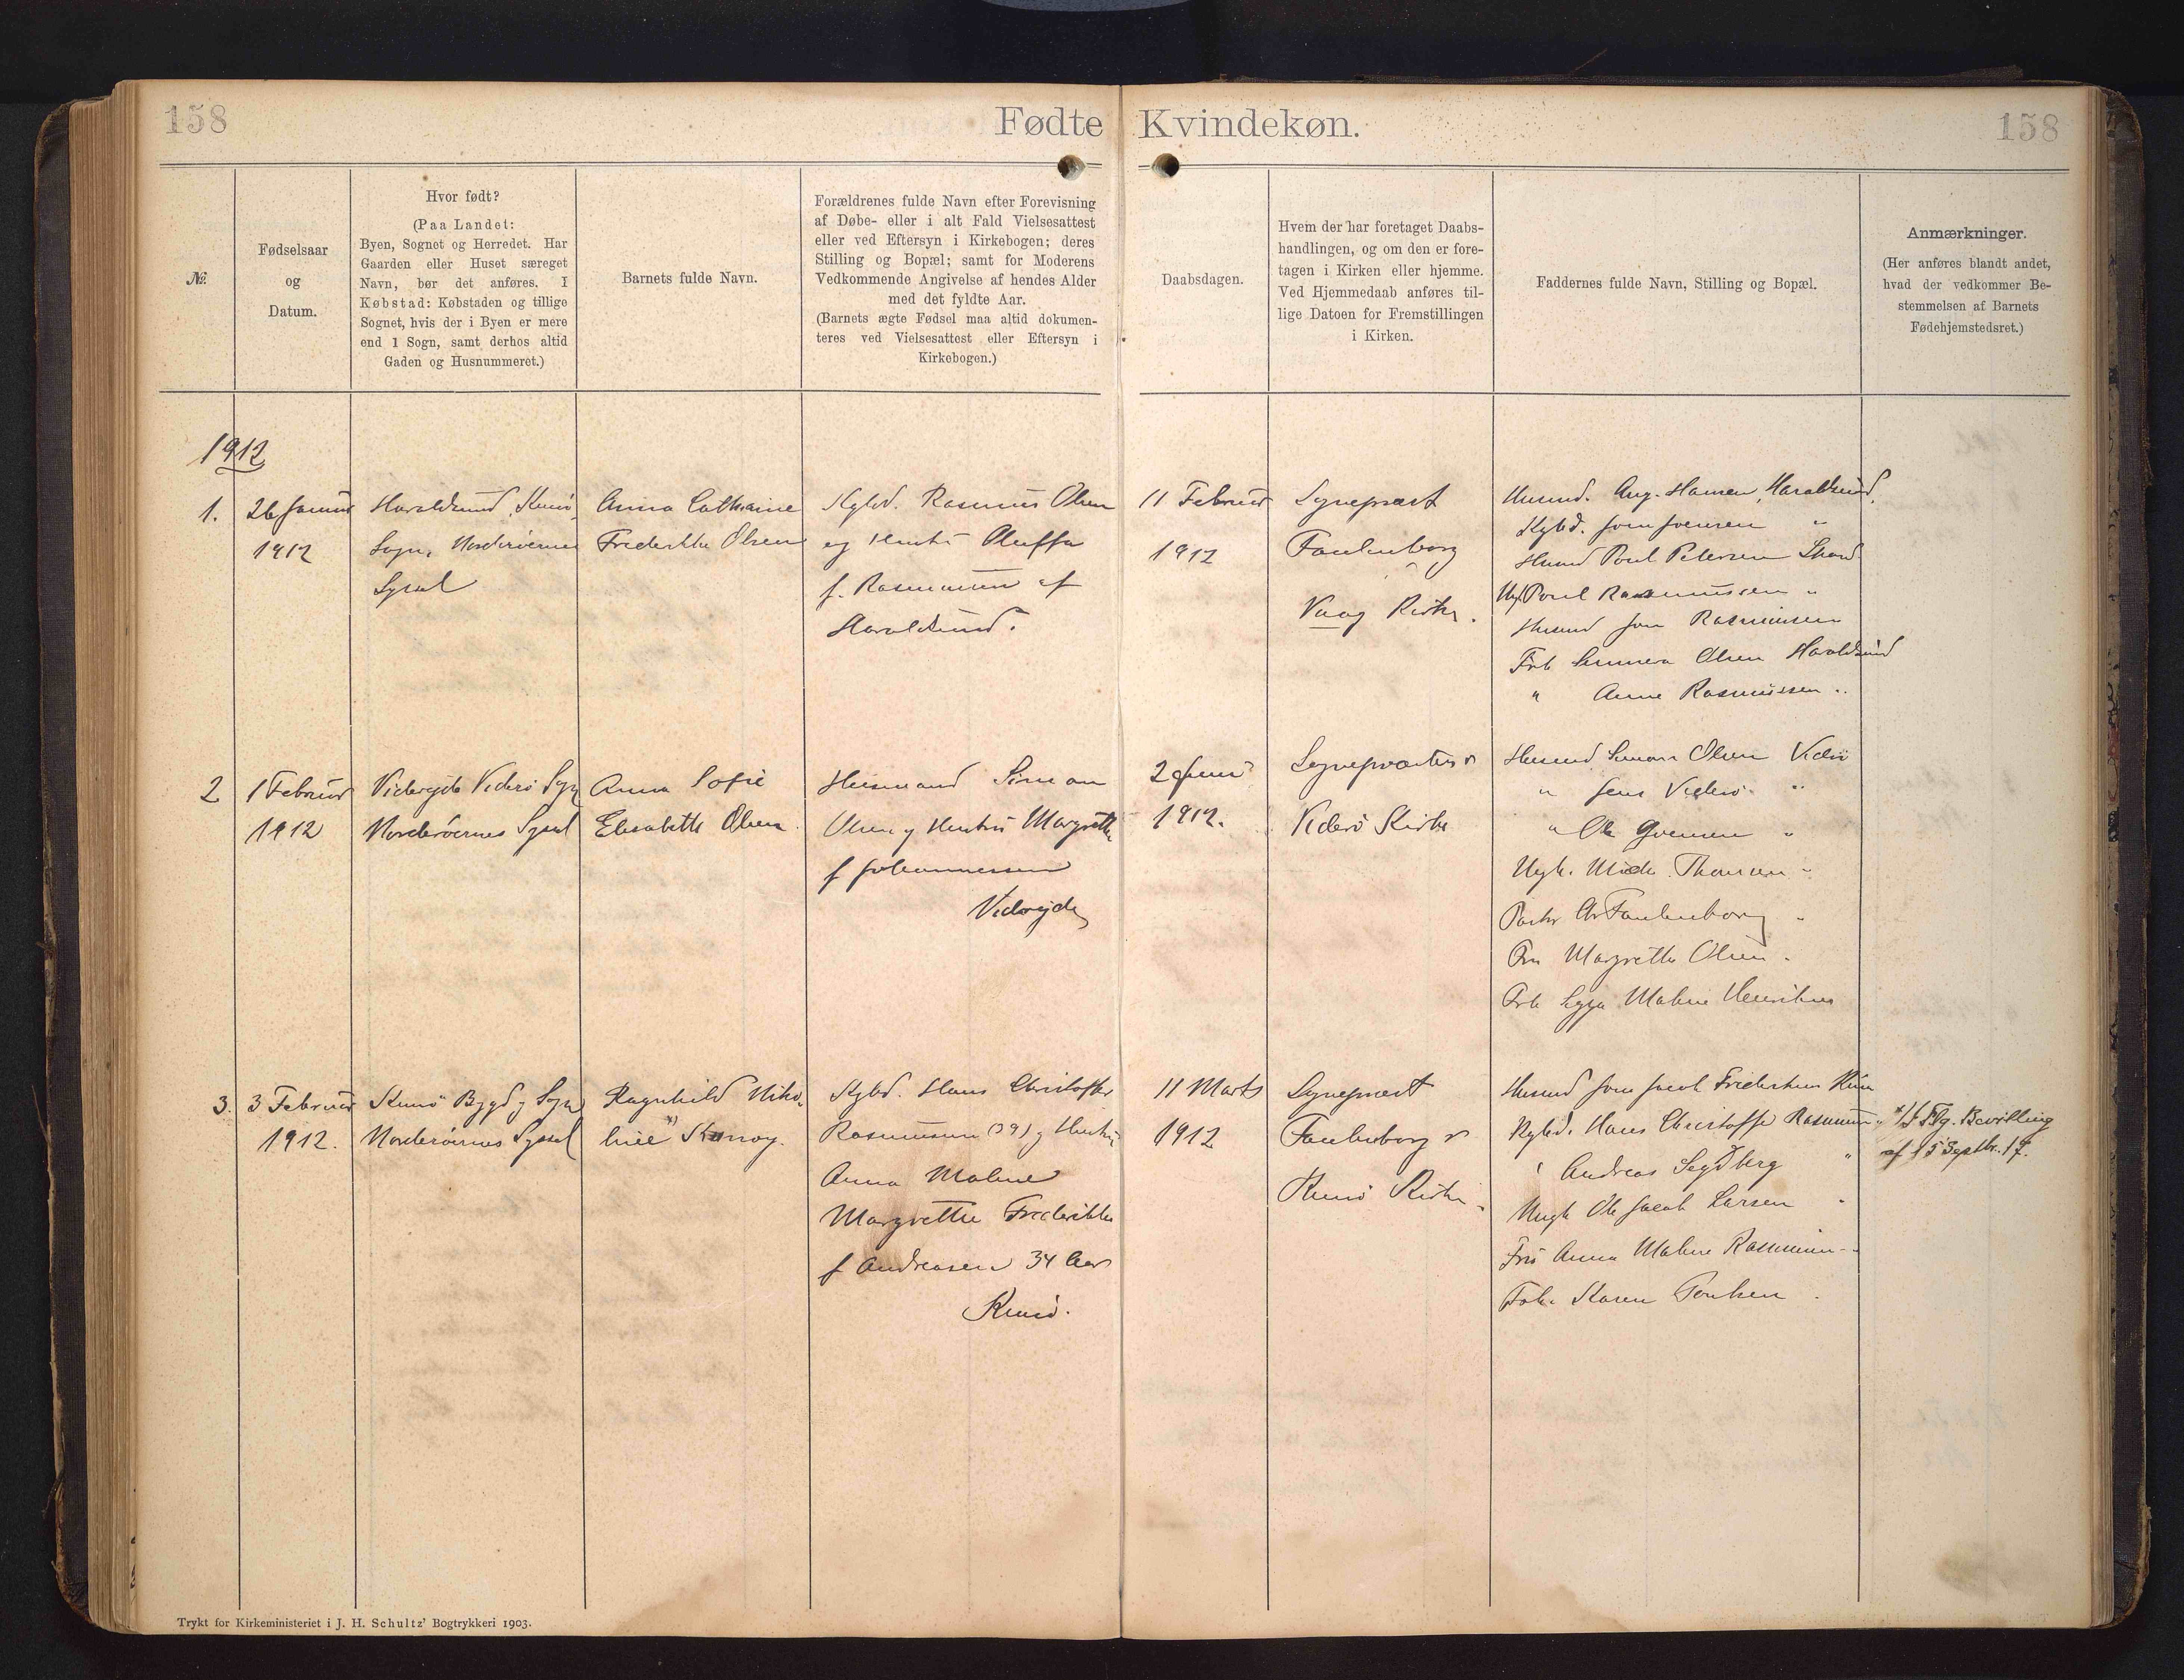 158
Fødte
Kvindekøn.
158
№
Fødselsaar
og
Datum.
Hvor født?
(Paa Landet:
Byen, Sognet og Herredet. Har
Gaarden eller Huset særeget
Navn, bør det anføres. I
Købstad: Købstaden og tillige
Sognet, hvis der i Byen er mere
end 1 Sogn, samt derhos altid
Gaden og Husnummeret.)
Barnets fulde Navn.
Forældrenes fulde Navn efter Forevisning
af Døbe- eller i alt Fald Vielsesattest
eller ved Eftersyn i Kirkebogen; deres
Stilling og Bopæl; samt for Moderens
Vedkommende Angivelse af hendes Alder
med det fyldte Aar.
(Barnets ægte Fødsel maa altid dokumen-
teres ved Vielsesattest eller Eftersyn i
Kirkebogen.)
Daabsdagen.
Hvem der har foretaget Daabs-
handlingen, og om den er fore-
tagen i Kirken eller hjemme.
Ved Hjemmedaab anføres til-
lige Datoen for Fremstillingen
i Kirken.
Faddernes fulde Navn, Stilling og Bopæl.
Anmærkninger.
(Her anføres blandt andet,
hvad der vedkommer Be-
stemmelsen af Barnets
Fødehjemstedsret.)
1912
1.
26 Januar
1912
Haraldsund, Kunø
Sogn, Norderøernes
Syssel
Anna Cathrine
Frederikke Olsen
Kgbd. Rasmus Olsen
og Hustru Oluffa
f. Rasmussen af
Haraldsund.
11 Februar
1912
Sognepræst
Faulenborg
Vaag Kirke.
Husmd. Aug. Hansen, Haraldsund,
Kgbd. Joen Joensen "
Husmd Poul Petersen Strand
Poul Rasmussen "
Husmd Joen Rasmussen
Frk Olsen Haraldsund
" Anne Rasmussen "
2
1 Februar
1912
Viderejde Viderø Sogn
Norderøernes Syssel
Anna Sofie
Elisabeth Olsen
Husmand Simon
Olsen og Hustru Margrethe
f Johannessen
Viderejde
2 Juni
1912.
Sognepræsten i
Viderø Kirke
Husmd Simon Olsen Viderø
" Jens Viderø "
" Ole "
Ungk. Thomsen "
Faulenborg "
Fru Margrethe Olsen "
Frk Malene Henriksen
3.
3 Februar
1912.
Kunø Bygd og Sogn
Norderøernes Syssel
Ragnhild Niko-
line *) Kunoy.
Kgbd. Hans Christoffer
Rasmussen (39) og Hustru
Anna Malene
Margrethe Frederikke
f Andreasen 34 Aar
Kunø.
11 Marts
1912
Sognepræst
Faulenborg i
Kunø Kirke.
Husmd Joen Jacob Frederiksen Kunø
Kgbd. Hans Christoffer Rasmussen "
" Andreas "
Ungk Ole Jacob Larsen "
Fru Anna Malene Rasmussen "
Frk. Karen Poulsen "
*) Bevilling
af 15 Septbr. 17.
Trykt for Kirkeministeriet i J. H. Schultz' Bogtrykkeri 1903.